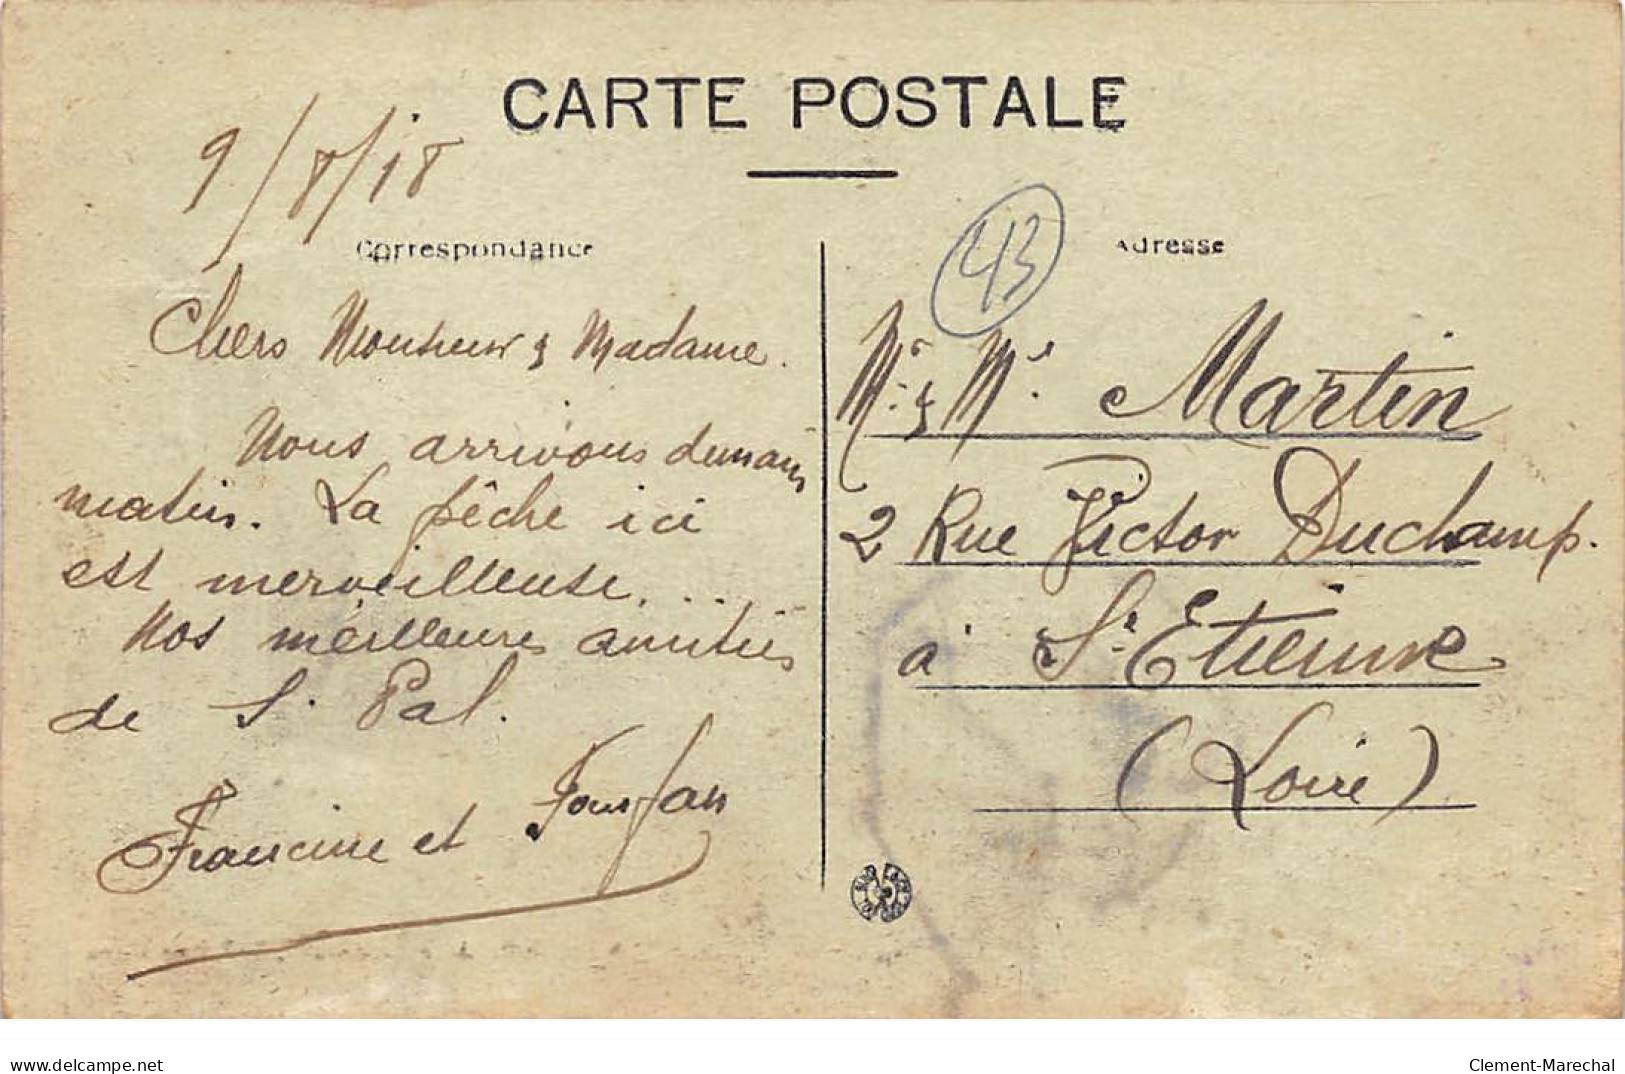 CARTE POSTALE
9/8/18
Correspondance
Chers Monsieur & Madame.
Nous arrivons demain
matin. La pêche ici
est merveilleuse...
Nos meilleures amitiés
de St. Pal.
Francine et
43
Adresse
Mr. & Me. Martin
2 Rue Victor Duchamp.
à St. Etienne
(Loire)
www.delcampe.net
Clement-Marechal